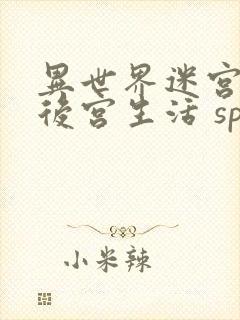 異世界迷宮
後宮生活 sp
小米辣